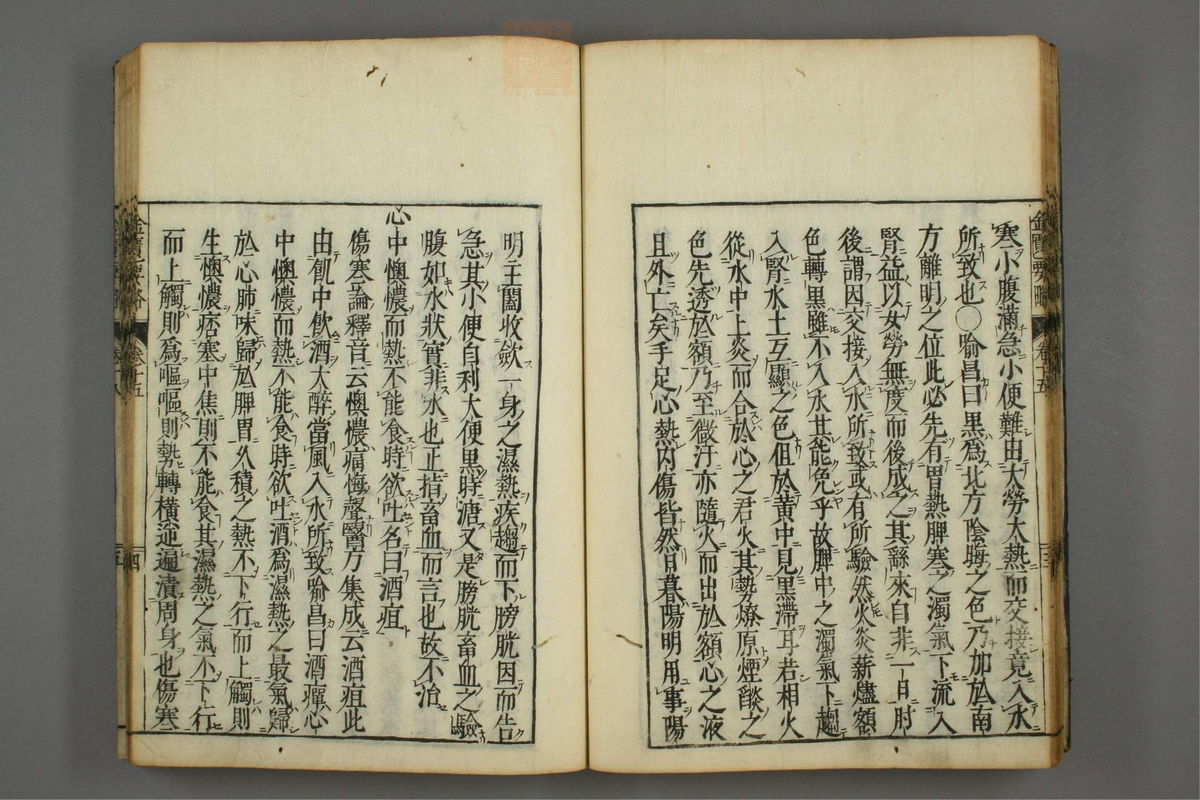 寒小腹滿急小便難由大勞大熱而交接竟入水
所致也○喻昌曰黒爲北方陰晦之色乃加於南
方離明之位此必先有胃熱脾寒之濁氣下流入
腎益以女勞無度而後成之其繇來自非一日肘
後謂因交接入水所致或有所驗然火炎薪燼額
色轉黒雖不入水其能免乎故脾中之濁氣下趨
入腎水土互顯之色但於黄中見黒滯耳若相火
從水中上炎而合於心之君火其勢燎原煙𦦨之
色先透於額乃至微汗亦隨火而出於額心之液
且外亡矣手足心熱内傷皆然日暮陽明用事陽
明主闔收歛一身之濕熱疾趨而下膀胱因而告
急其小便自利大便黒時溏又是膀胱畜血之驗
腹如水狀實非水也正指畜血而言也故不治
心中懊憹而熱不能食時欲吐名曰酒疸
傷寒論釋音云懊憹痛悔聲醫方集成云酒疸此
由飢中飲酒大醉當風入水所致喻昌曰酒癉心
中懊憹而熱不能食時欲吐酒爲濕熱之最氣歸
於心肺味歸於脾胃久積之熱不下行而上觸則
生懊憹痞塞中焦則不能食其濕熱之氣不下行
而上觸則爲嘔嘔則勢轉橫逆遍漬周身也傷寒
金匱要略
卷十五
四